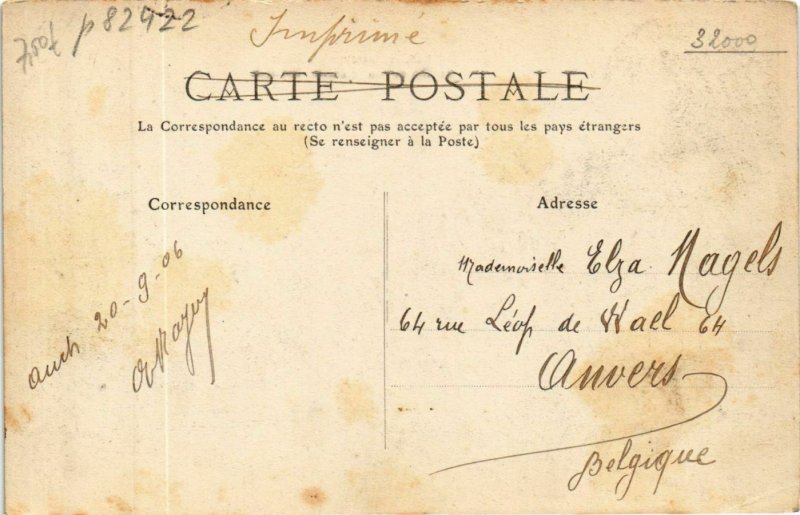 p 82922
Imprimé
32000
CARTE POSTALE
La Correspondance au recto n'est pas acceptée par tous les pays étrangers
(Se renseigner à la Poste)
Correspondance
Auch 20-9-06
Adresse
Mademoiselle Elza Nagels
64 rue Léop de Wael 64
Anvers
Belgique